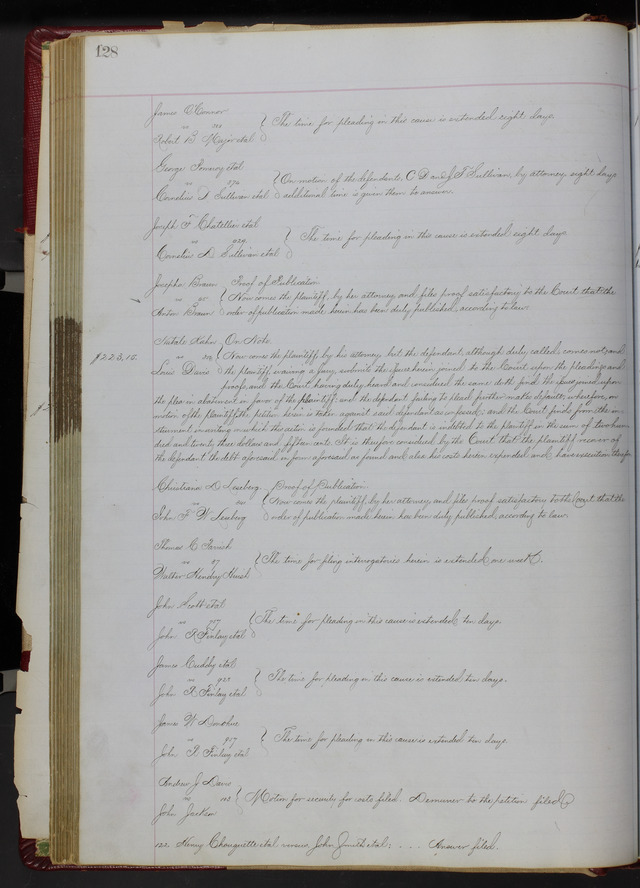 128
James O'Connor
vs
Robert B. Major et al } The time for pleading in this cause is extended eight days.
George et al
vs
Cornelius D. Sullivan et al } On motion of the defendants, C. D. and J. F. Sullivan, by attorney eight days
additional time is given them to answer.
Joseph F. Chatellier et al
vs 929
Cornelius D. Sullivan et al } The time for pleading in this cause is extended eight days
Josepha Braun Proof of Publication
vs
Anton Braun } Now comes the plaintiff, by her attorney and files proof satisfactory to the Court that the
order of publication made herein has been duly published, according to law.
Nathale Kahn On Note.
$223.15. vs { Now comes the plaintiff by his attorney but the defendant although duly called comes not, and
Louis Davis the plaintiff waiving a jury, submits the issue herein joined to the Court upon the pleadings and
proofs, and the Court having duly heard and considered the same doth find the issue joined upon
the plea in abatement in favor of the plaintiff and the defendant failing to plead further makes default; wherefore, on
motion of the plaintiff the petition herein is taken against said defendant as confessed; and the Court finds from the in-
strument in writing on which this action is founded that the defendant is indebted to the plaintiff in the sum of two hun-
dred and twenty three dollars and fifteen cents. It is therefore considered by the Court that the plaintiff recover of
the defendant the debt aforesaid in form aforesaid as found and also his costs herein expended and have execution therefor
Christiana D. Leseberg. Proof of Publication.
vs
John F. W. Leseberg { Now comes the plaintiff, by her attorney and files proof satisfactory to the Court that the
order of publication made herein has been duly published, according to law.
Thomas C. Parish
vs 87
Walter Hendry Hursh { The time for filing interrogatories herein is extended one week.
John Scott et al
vs
John P. Finlay et al { The time for pleading in this cause is extended ten days
James Cuddy et al
vs
John P. Finlay et al { The time for pleading in this cause is extended ten days.
James W. Donohue
vs 917
John P. Finlay et al { The time for pleading in this cause is extended ten days
Andrew J. Davis
vs 123 { Motion for security for costs filed. Demurrer to the petition filed
John Jackson
122. Henry Chouquette et al versus John Smith et al: . . . Answer filed.